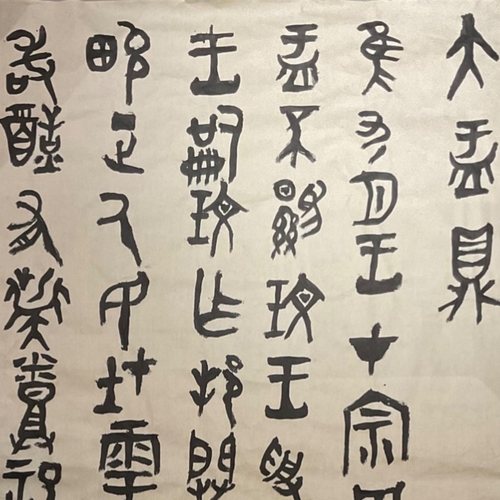 大盂鼎
隹九月王才宗周
盂不顯玟王受
王嗣玟乍邦闢
畯正氒民在雩
敢酖有祡烝祀